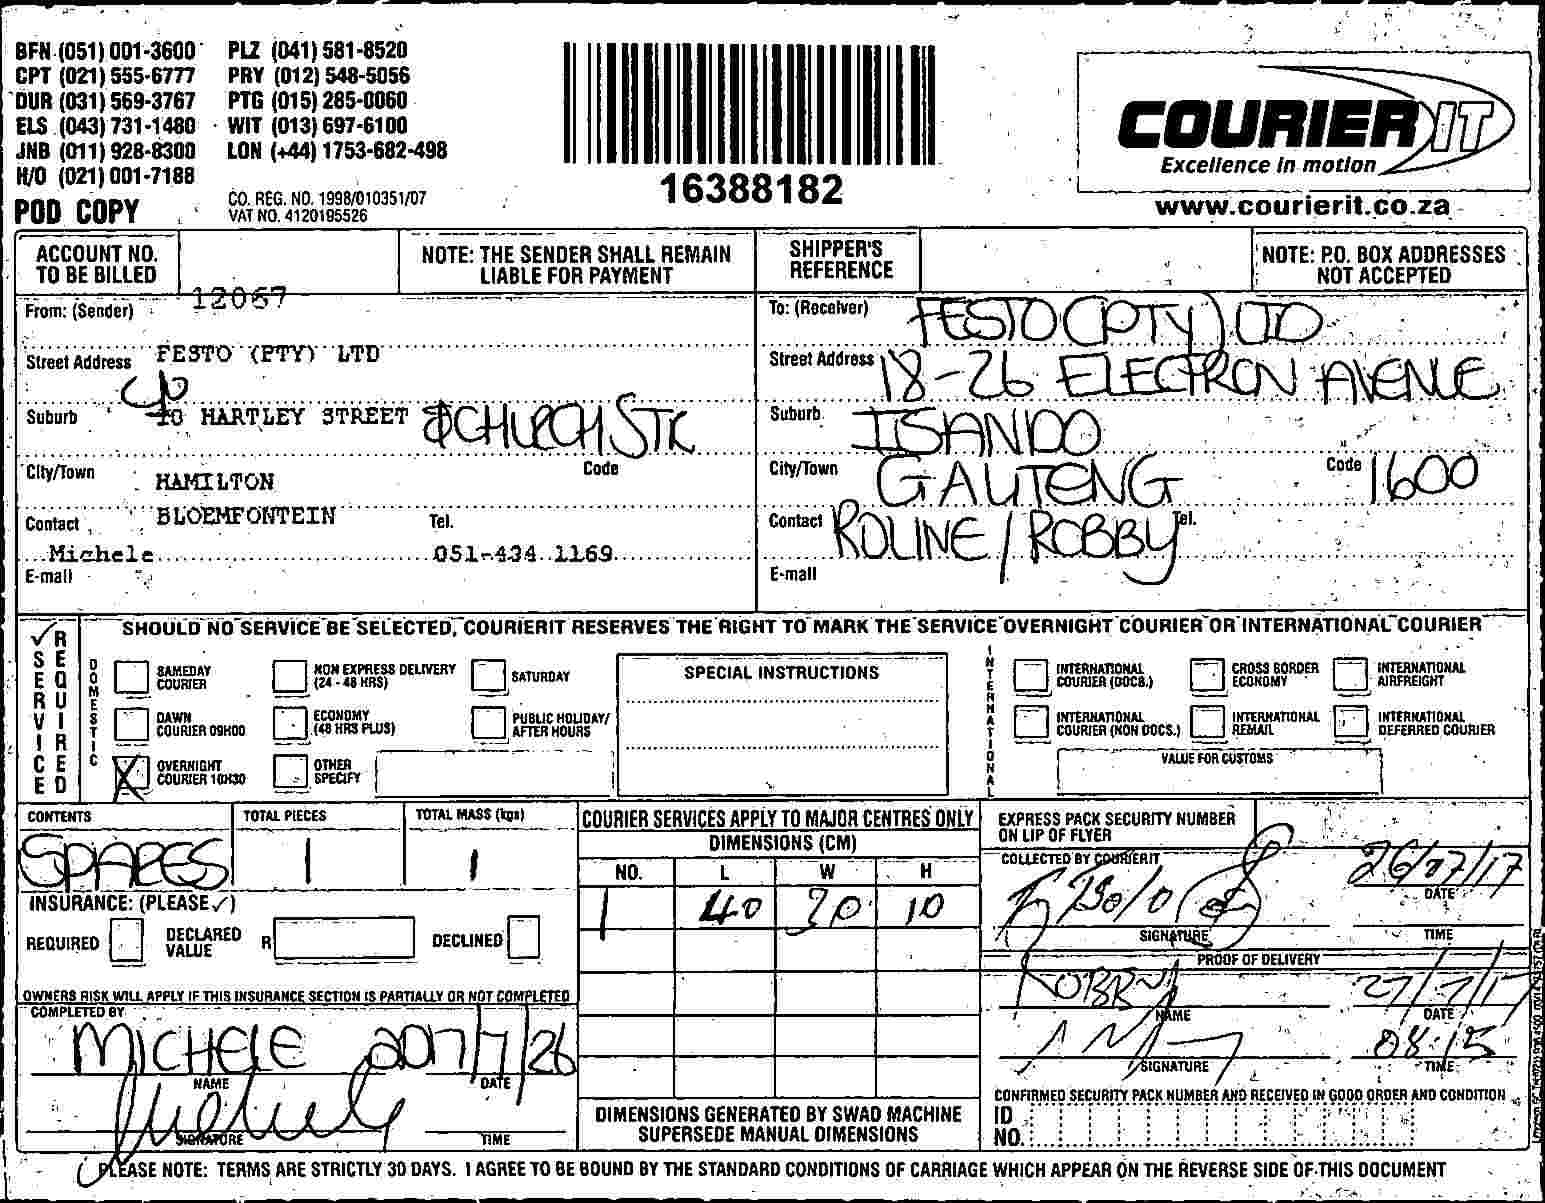 BFN (051) 001-3600 PLZ (041) 581-8520
CPT (021) 555-6777 PRY (012) 548-5056
DUR (031) 569-3767 PTG (015) 285-0060
ELS (043) 731-1480 WIT (013) 697-6100
JNB (011) 928-8300 LON (+44) 1753-682-498
H/O (021) 001-7188
POD COPY
CO. REG. NO. 1998/010351/07
VAT NO. 4120195526
16388182
COURIER IT
Excellence in motion
www.courierit.co.za
ACCOUNT NO. TO BE BILLED
12067
NOTE: THE SENDER SHALL REMAIN LIABLE FOR PAYMENT
SHIPPER'S REFERENCE
NOTE: P.O. BOX ADDRESSES NOT ACCEPTED
From: (Sender)
Street Address FESTO (PTY) LTD
Suburb HARTLEY STREET CHURCH STR
City/Town HAMILTON Code
Contact BLOEMFONTEIN Tel.
Michele 051-434 1169
E-mail
To: (Receiver) FESTO (PTY) LTD
Street Address 18-26 ELECTRON AVENUE
Suburb ISANDO
City/Town GAUTENG Code 1600
Contact ROLINE / ROBBY Tel.
E-mail
SHOULD NO SERVICE BE SELECTED, COURIERIT RESERVES THE RIGHT TO MARK THE SERVICE OVERNIGHT COURIER OR INTERNATIONAL COURIER
✓ SERVICE REQUIRED
DOMESTIC
SAMEDAY COURIER
NON EXPRESS DELIVERY (24 - 48 HRS)
SATURDAY
DAWN COURIER 09H00
ECONOMY (48 HRS PLUS)
PUBLIC HOLIDAY/ AFTER HOURS
X OVERNIGHT COURIER 10H30
OTHER SPECIFY
SPECIAL INSTRUCTIONS
INTERNATIONAL
INTERNATIONAL COURIER (DOCS.)
CROSS BORDER ECONOMY
INTERNATIONAL AIRFREIGHT
INTERNATIONAL COURIER (NON DOCS.)
INTERNATIONAL REMAIL
INTERNATIONAL DEFERRED COURIER
VALUE FOR CUSTOMS
CONTENTS
SPARES
TOTAL PIECES
1
TOTAL MASS (kgs)
1
INSURANCE: (PLEASE ✓)
REQUIRED DECLARED VALUE R DECLINED
OWNERS RISK WILL APPLY IF THIS INSURANCE SECTION IS PARTIALLY OR NOT COMPLETED
COMPLETED BY
MICHELE 2017/7/26
NAME DATE
SIGNATURE TIME
COURIER SERVICES APPLY TO MAJOR CENTRES ONLY
DIMENSIONS (CM)
NO. L W H
1 40 30 10
DIMENSIONS GENERATED BY SWAD MACHINE SUPERSEDE MANUAL DIMENSIONS
EXPRESS PACK SECURITY NUMBER ON LIP OF FLYER
COLLECTED BY COURIERIT
26/07/17
DATE
SIGNATURE TIME
PROOF OF DELIVERY
27/7/17
NAME DATE
08:15
SIGNATURE TIME
CONFIRMED SECURITY PACK NUMBER AND RECEIVED IN GOOD ORDER AND CONDITION
ID NO.
PLEASE NOTE: TERMS ARE STRICTLY 30 DAYS. I AGREE TO BE BOUND BY THE STANDARD CONDITIONS OF CARRIAGE WHICH APPEAR ON THE REVERSE SIDE OF THIS DOCUMENT